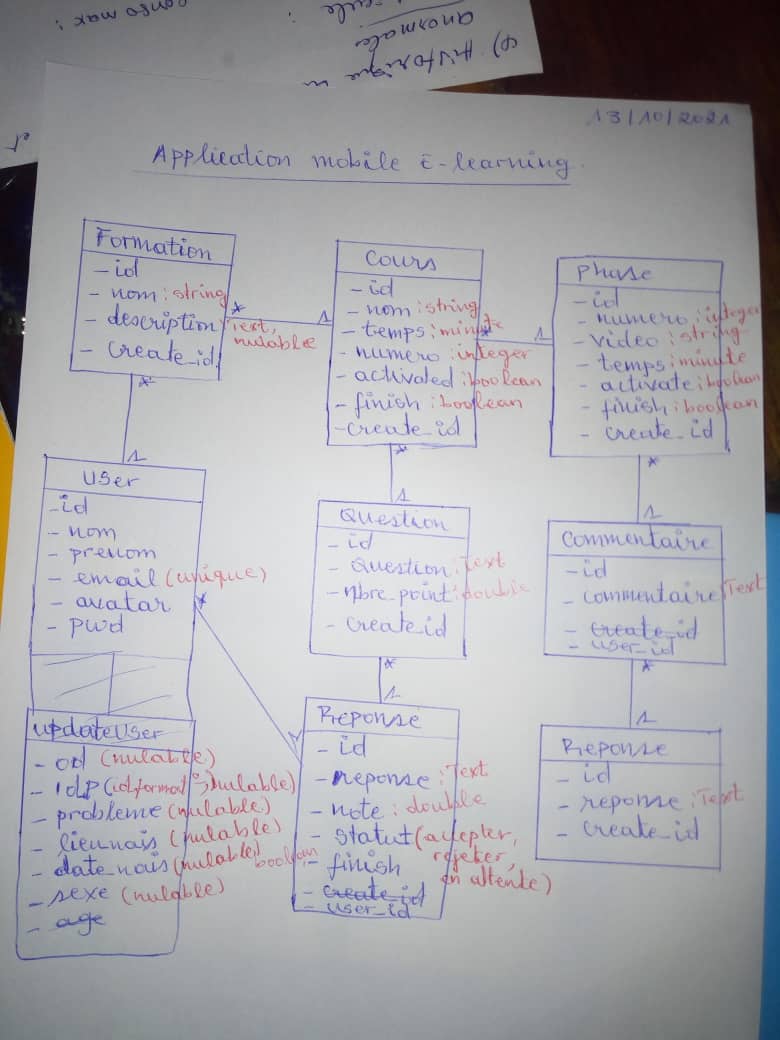 conso max :
cule :
anormales
φ) Historique
et
13/10/2021
Application mobile E-learning.
Formation
- id
- nom : string
- description Text,
nulable
- Create_id
*
1
Cours
- id
- nom : string
- temps : minute
- numero : integer
- activated : boolean
- finish : boolean
- create_id
*
1
Phase
- id
- numero : integer
- video : string
- temps : minute
- activate : boolean
- finish : boolean
- create_id
*
1
User
- id
- nom
- prenom
- email (unique)
- avatar
- pwd
*
1
*
Question
- id
- Question : Text
- nbre_point : double
- Create id
*
1
Commentaire
- id
- commentaire Text
- create_id
- user_id
*
1
updateUser
(nulable)
- idP (id_format°, nulable)
- probleme (nulable)
- lieunais (nulable)
- date_nais (nulable)
- sexe (nulable)
- age
*
1
Reponse
- id
- reponse : Text
- note : double
- statut (accepter,
rejeter,
en attente)
boolean - finish
- create_id
- user_id
*
1
Reponse
- id
- reponse : Text
- create_id